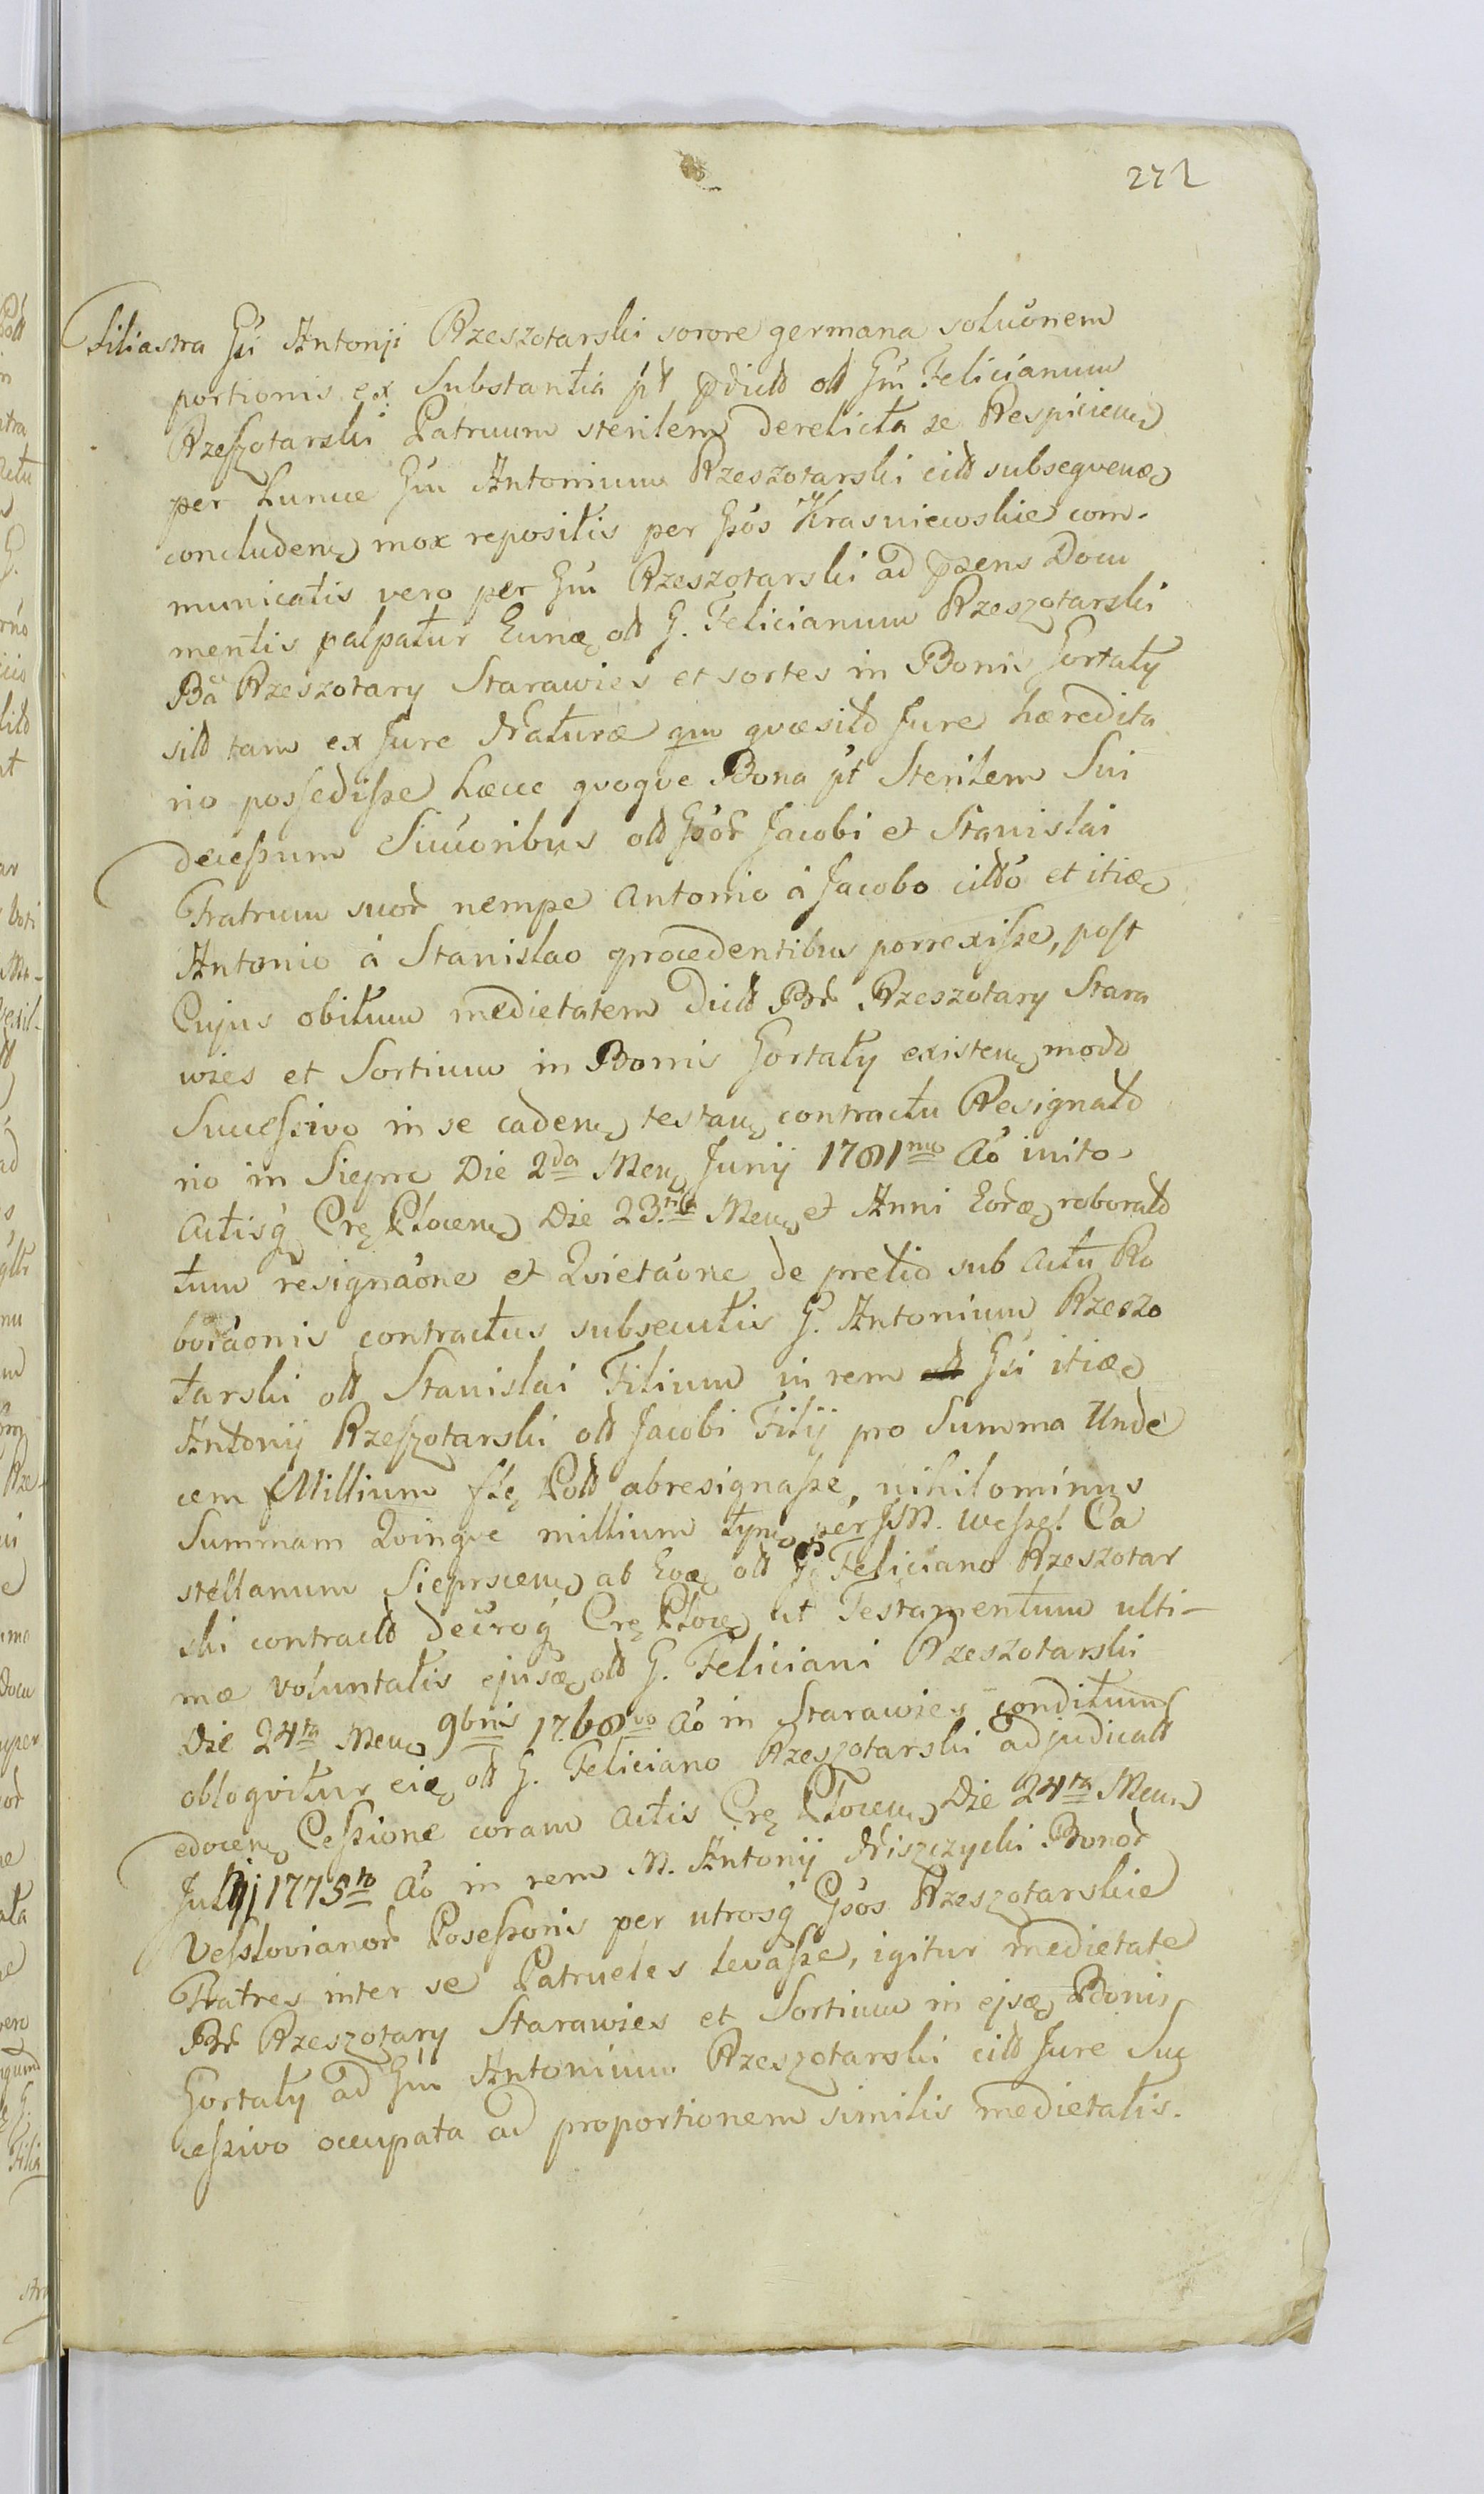 272
Filiastra Gsi Antonij Rzeszotarski sorore germana soluónem
portionis ex Substantia pt pdictd old Gm Felicianum
Rzeszotarski Patruum sterilem derelicta se Respicien
per hunce Gm Antonium Rzeszotarski citd subsequen
concluden mox repositis per Gsos Krasniewskie com-
municatis vero per Gm Rzeszotarski ad pzens Docu
mentis palpatur Eunæ old G. Felicianum Rzeszotarski
Ba Rzeszotary Starawies et sortes in Bonis Gortaty
sitd tam ex Jure Naturæ qm qvæsitd Jure hæredita
rio possedisse hæcce qvoqve Bona pt Sterilem Sui
decessum Succoribus old Gsor Jacobi et Stanislai
Fratrum suor nempe Antonio á Jacobo citdo et itiæ
Antonio á Stanislao procedentibus porrexisse, post
Cujus obitum medietatem dictd Br Rzeszotary Stara
wies et Sortium in Bonis Gortaty existen modo
Successivo in se caden testan contractu Resignatd
rio in Sieprc Die 2da Men Junij 1781mo Ao inito
Actisq Cre Plocen Die 23tia Men et Anni Eoræ roboratd
tum resignaóne et Qvietaóne de pretio sub Actu Ro
boraonis contractus subsecutis G. Antonium Rzeszo
tarski old Stanislai Filium in rem Gsi itiæ
Antonij Rzeszotarski old Jacobi Filij pro Summa Unde
cem Millium fle Pold abresignasse, nihilominus
Summam Qvinqve millium tym per JM. Wessel Ca
stellanum Sieprscen ab Eoæ old G. Feliciano Rzeszotar
ski contractd decroq Cre Ploce ut Testamentum ulti-
mæ voluntatis ejusæ old G. Feliciani Rzeszotarski
Die 24ta Men 9bris 1768vo Ao in Starawies conditum
obloqvitur eiæ old G. Feliciano Rzeszotarski adjudicatd
edocen Cessione coram Actis Cre Plocen Die 24ta Men
Julij 1775to Ao in rem M. Antonij Niszczycki Bonor
Vesslovianor Posessoris per utrosq Gsos Rzeszotarskie
Fratres inter se Patrueles levasse, igitur medietate
Br Rzeszotary Starawies et Sortium in ejsæ Bonis
Gortaty ad Gm Antonium Rzeszotarski citd Jure Suc
cessivo occupata ad proportionem similis medietatis.